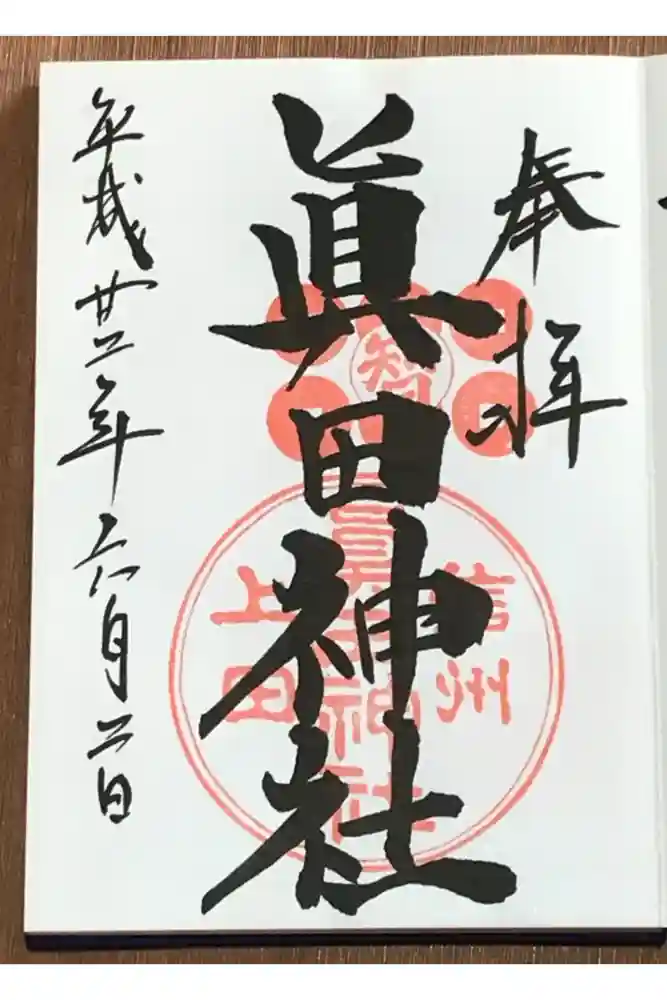 奉拝
眞田神社
平成廿二年六月二日
智
信州
眞田神社
上田